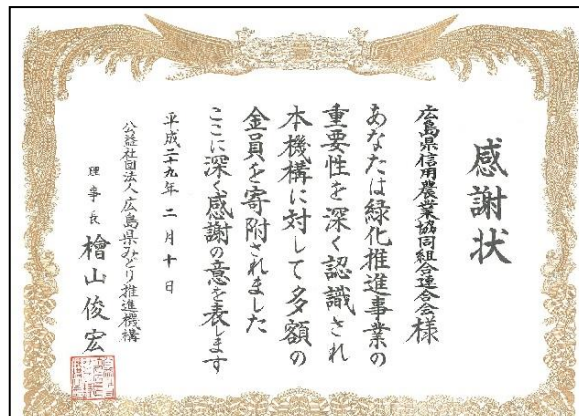 感謝状
広島県信用農業協同組合連合会様
あなたは緑化推進事業の
重要性を深く認識され
本機構に対して多額の
金員を寄附されました
ここに深く感謝の意を表します
平成二十九年二月十日
公益社団法人広島県みどり推進機構
理事長 檜山俊宏